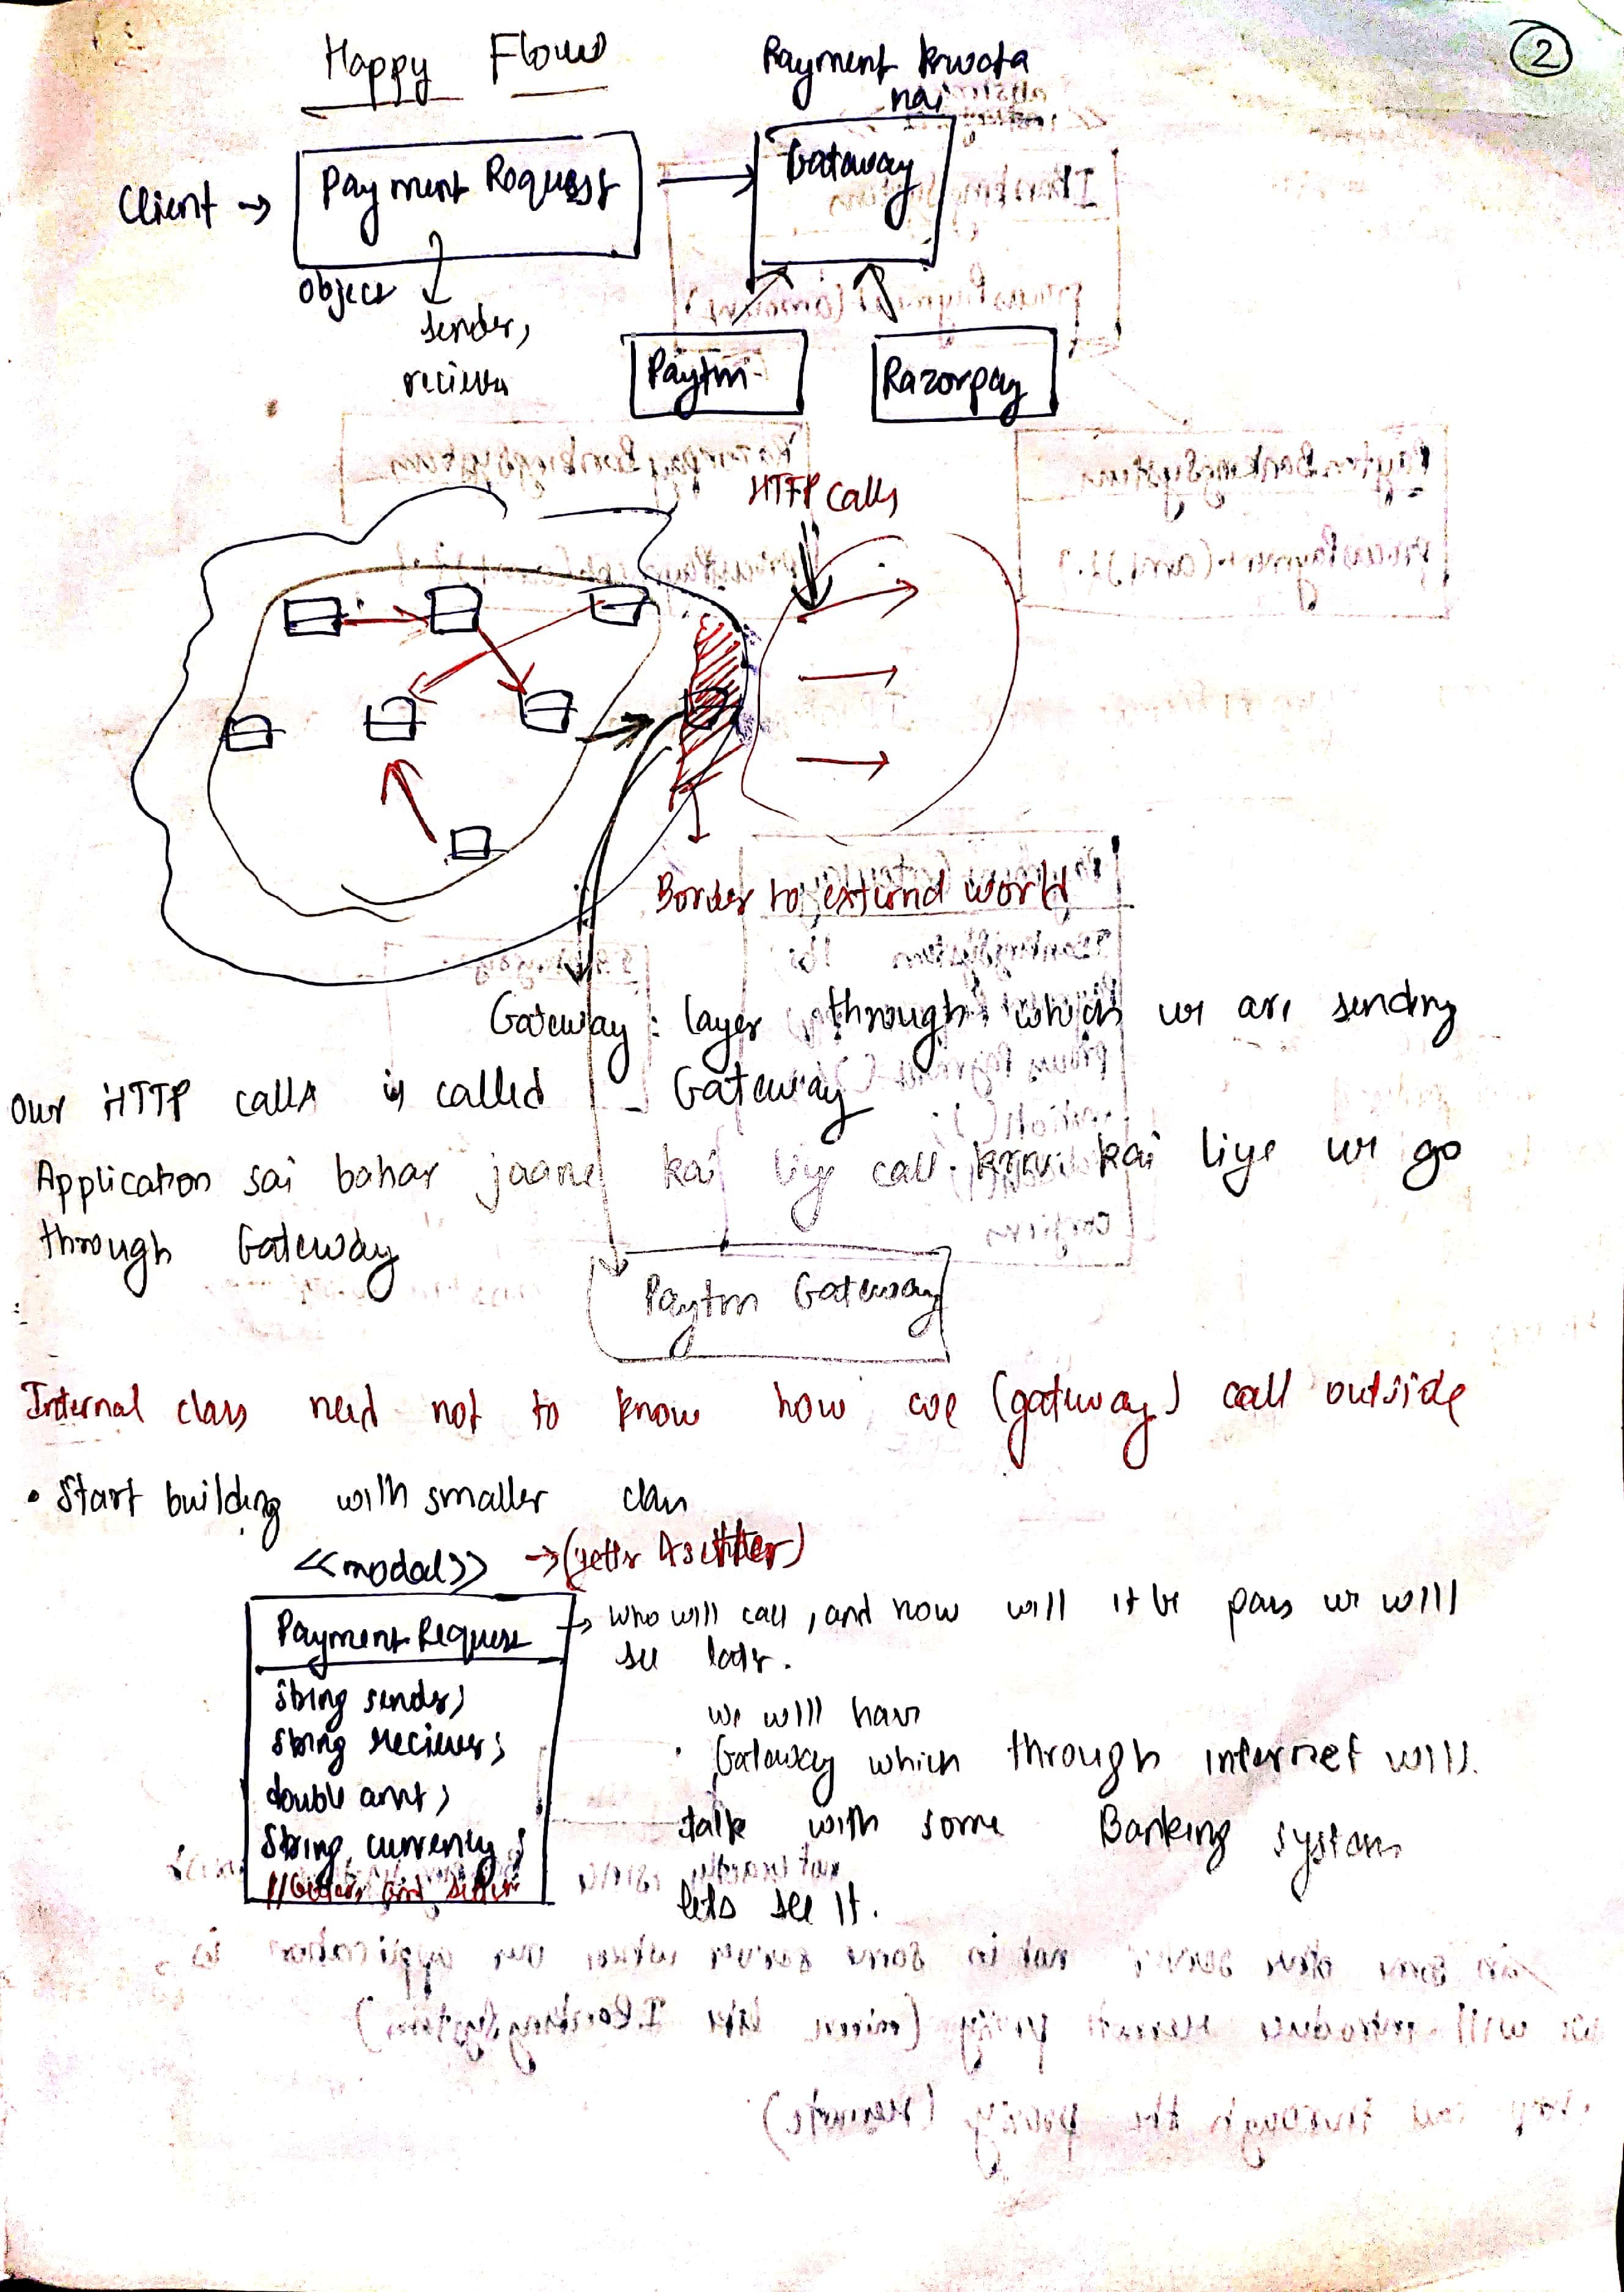 2
Happy Flow
Payment krwata
hai
Client → Payment Request → Gateway
object
sender,
reciever
Paytm Razorpay
HTTP Calls
Border to external world
Gateway : layer through which we are sending
Our HTTP calls is called Gateway
Application sai bahar jaane kai liye call krne kai liye we go
through Gateway
Paytm Gateway
Internal class need not to know how we (gateway) call outside
• Start building with smaller class
<<modal>> → (getter & setter)
Payment Request → who will call, and how will it be pass we will
see later.
String sender;
String reciever;
double amt;
String currency;
//Getters and setters
we will have
• Gateway which through internet will
talk with some Banking system
lets see it.